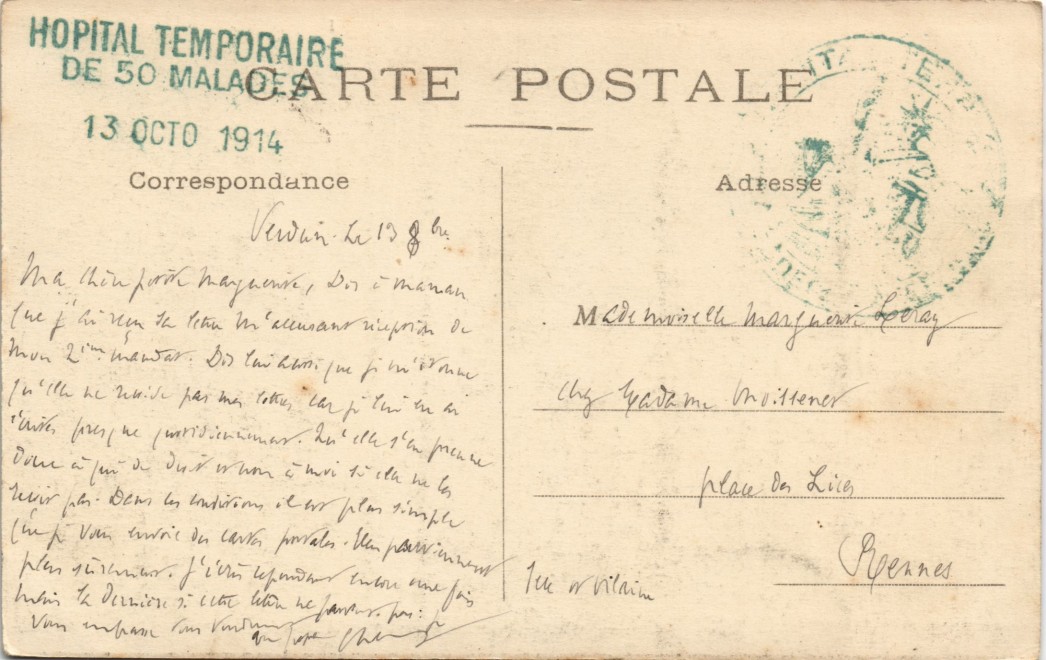 HOPITAL TEMPORAIRE
DE 50 MALADES
13 OCTO 1914
CARTE POSTALE
Correspondance
Adresse
Verdun Le 13 8bre
Ma chère petite Marguerite, Dis à maman
que j'ai reçu sa lettre m'accusant réception de
mon 2ième mandat. Dis lui aussi que je m'étonne
qu'elle ne reçoive pas mes lettres car je lui en ai
écrites presque quotidiennement. Qu'elle s'en prenne
donc à qui de droit et non à moi si elle ne les
reçoit pas. Dans ces conditions il est plus simple
que je vous envoie des cartes postales. Elles parviennent
plus sûrement. J'écris cependant encore une fois
mais la dernière si cette lettre ne parvient pas.
Vous embrasse tous
Mademoiselle Marguerite Leray
chez Madame
place des Lices
Rennes
Ille et Vilaine